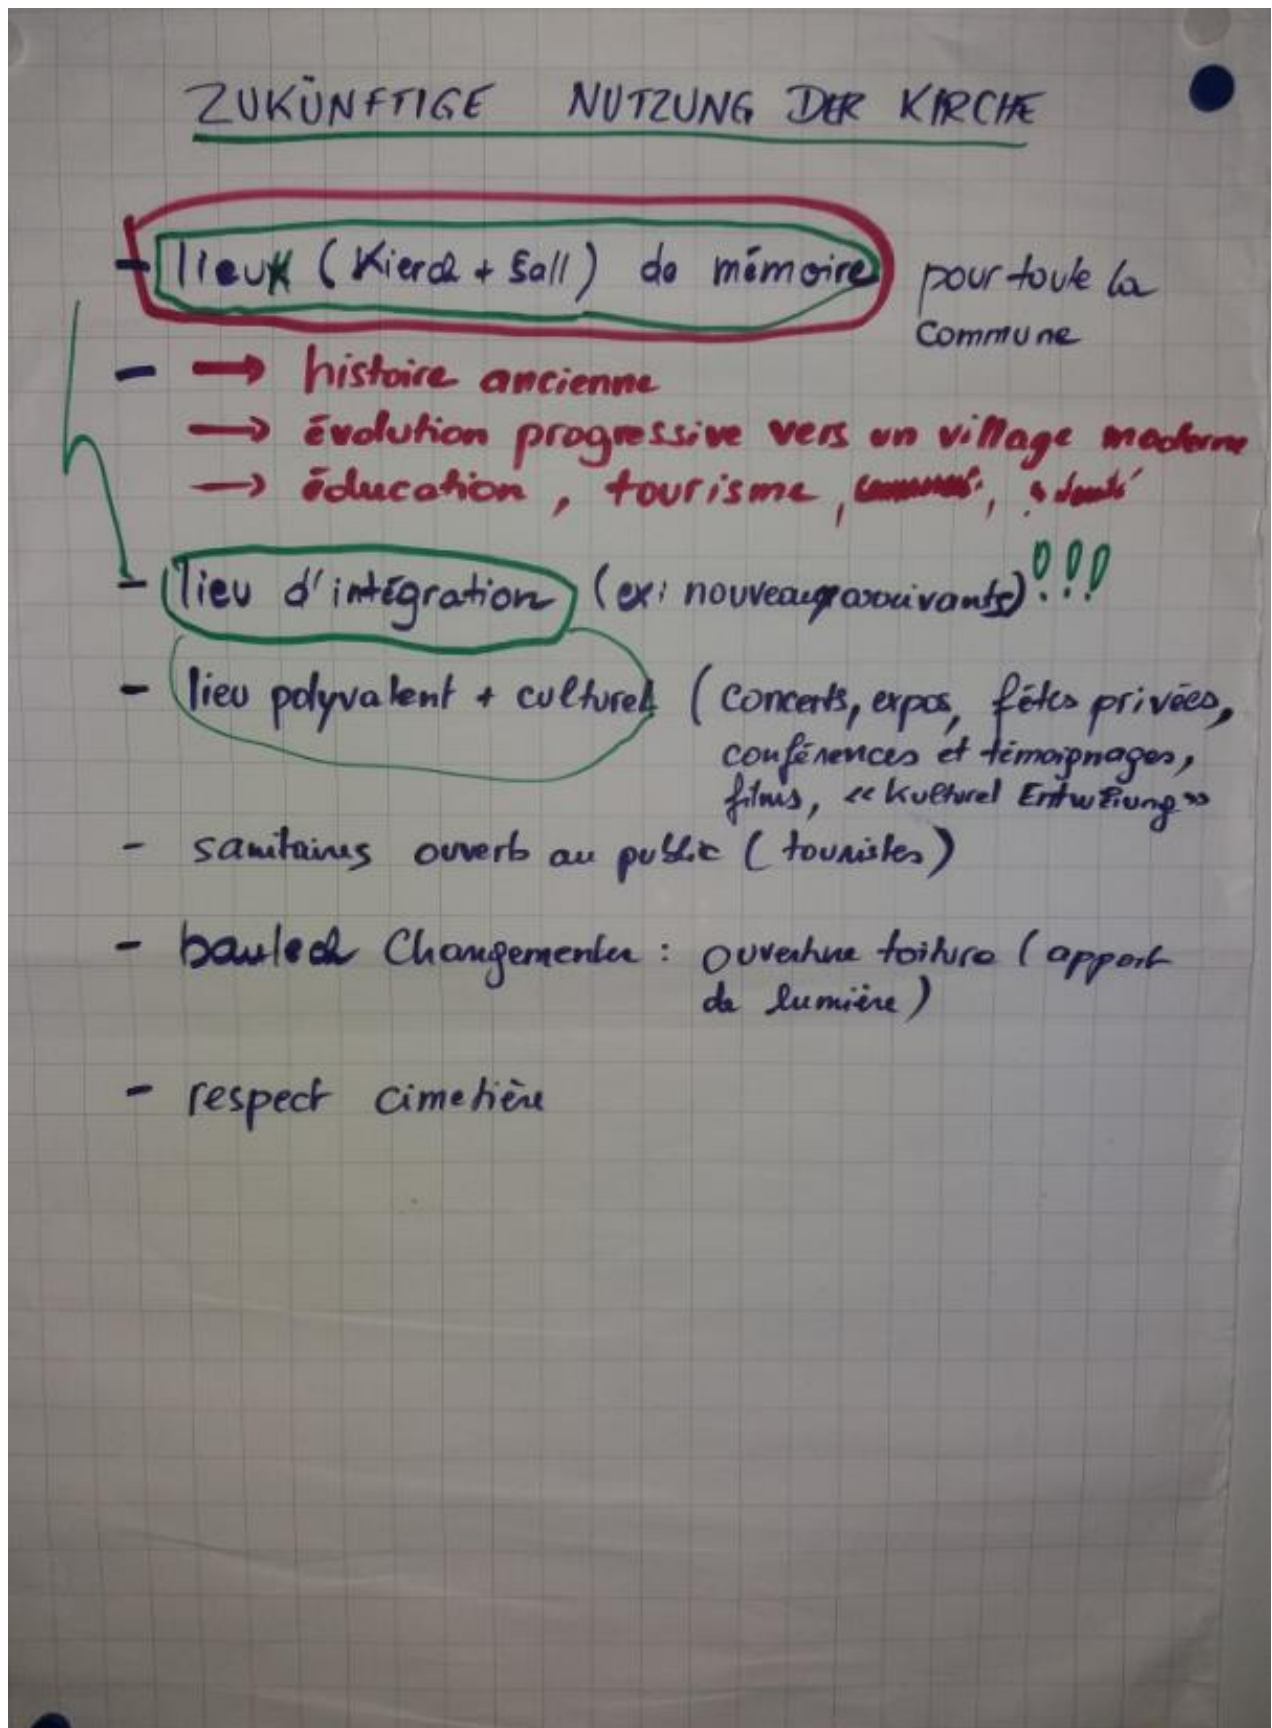 ZUKÜNFTIGE NUTZUNG DER KIRCHE
- lieux (Kierch + Sall) de mémoire pour toute la
Commune
- → histoire ancienne
→ évolution progressive vers un village moderne
→ éducation, tourisme,
- lieu d'intégration (ex: nouveaux arrivants) !!!
- lieu polyvalent + culturel (concerts, expos, fêtes privées,
conférences et témoignages,
films, « Kulturel Entwécklung »
- sanitaires ouverts au public (touristes)
- baulech Changementer : ouverture toiture (apport
de lumière)
- respect cimetière